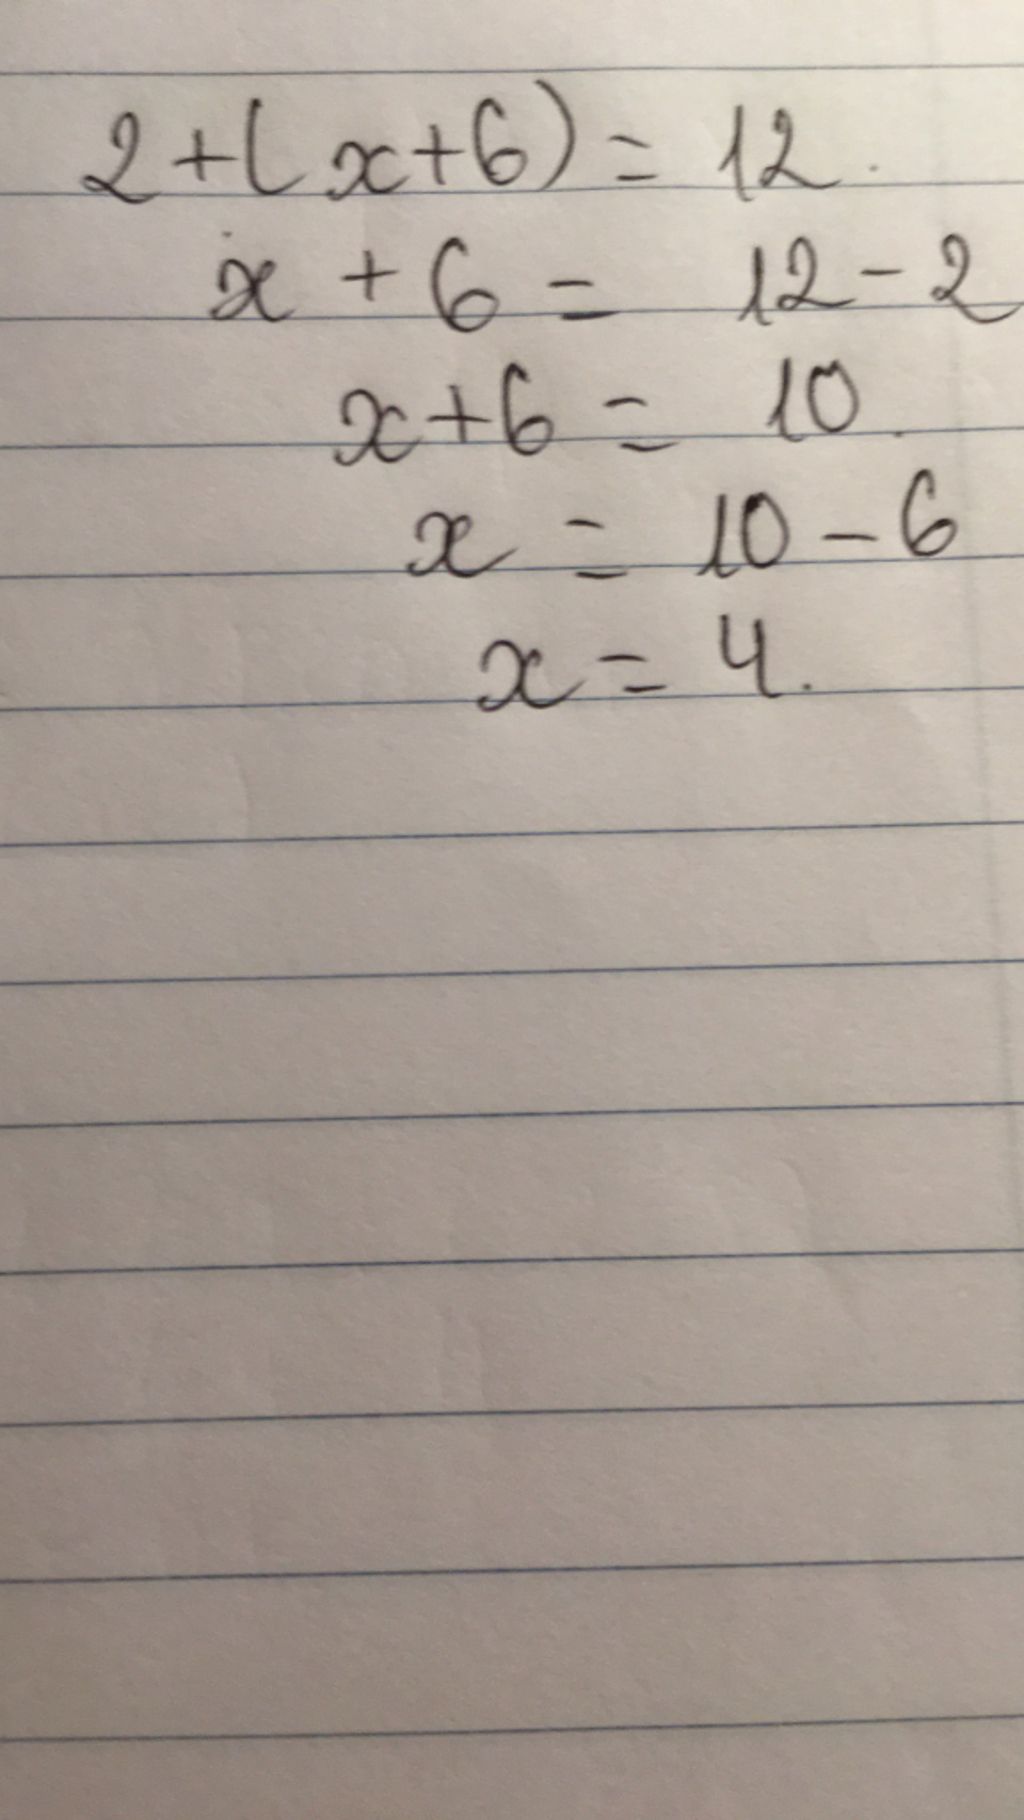 2+(x+6) = 12.
x + 6 = 12-2
x+6 = 10.
x = 10-6
x = 4.